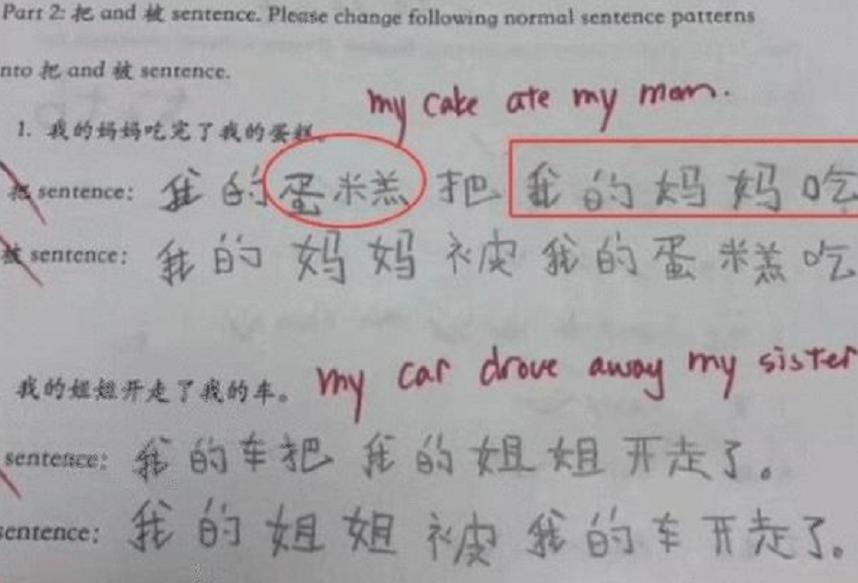 Part 2: 把 and 被 sentence. Please change following normal sentence patterns
nto 把 and 被 sentence.
my cake ate my mom.
1. 我的妈妈吃完了我的蛋糕。
把 sentence: 我的蛋糕把我的妈妈吃
被 sentence: 我的妈妈被我的蛋糕吃
我的姐姐开走了我的车。 my car drove away my sister
sentence: 我的车把我的姐姐开走了。
sentence: 我的姐姐被我的车开走了。